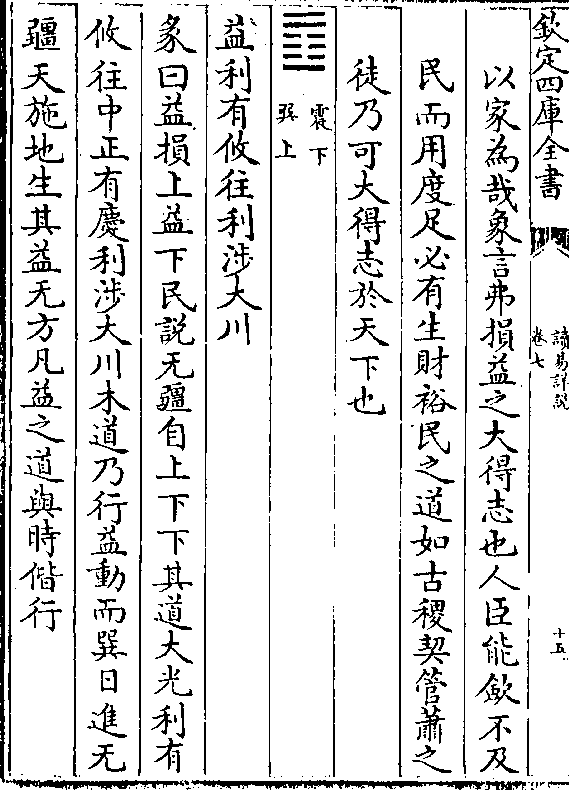 欽定四庫全書
讀易詳說
卷七
十五
以家為哉象言弗損益之大得志也人臣能斂不及
民而用度足必有生財裕民之道如古稷契管蕭之
徒乃可大得志於天下也
䷩
震下
巽上
益利有攸往利涉大川
彖曰益損上益下民說无疆自上下下其道大光利有
攸往中正有慶利涉大川木道乃行益動而巽日進无
疆天施地生其益无方凡益之道與時偕行